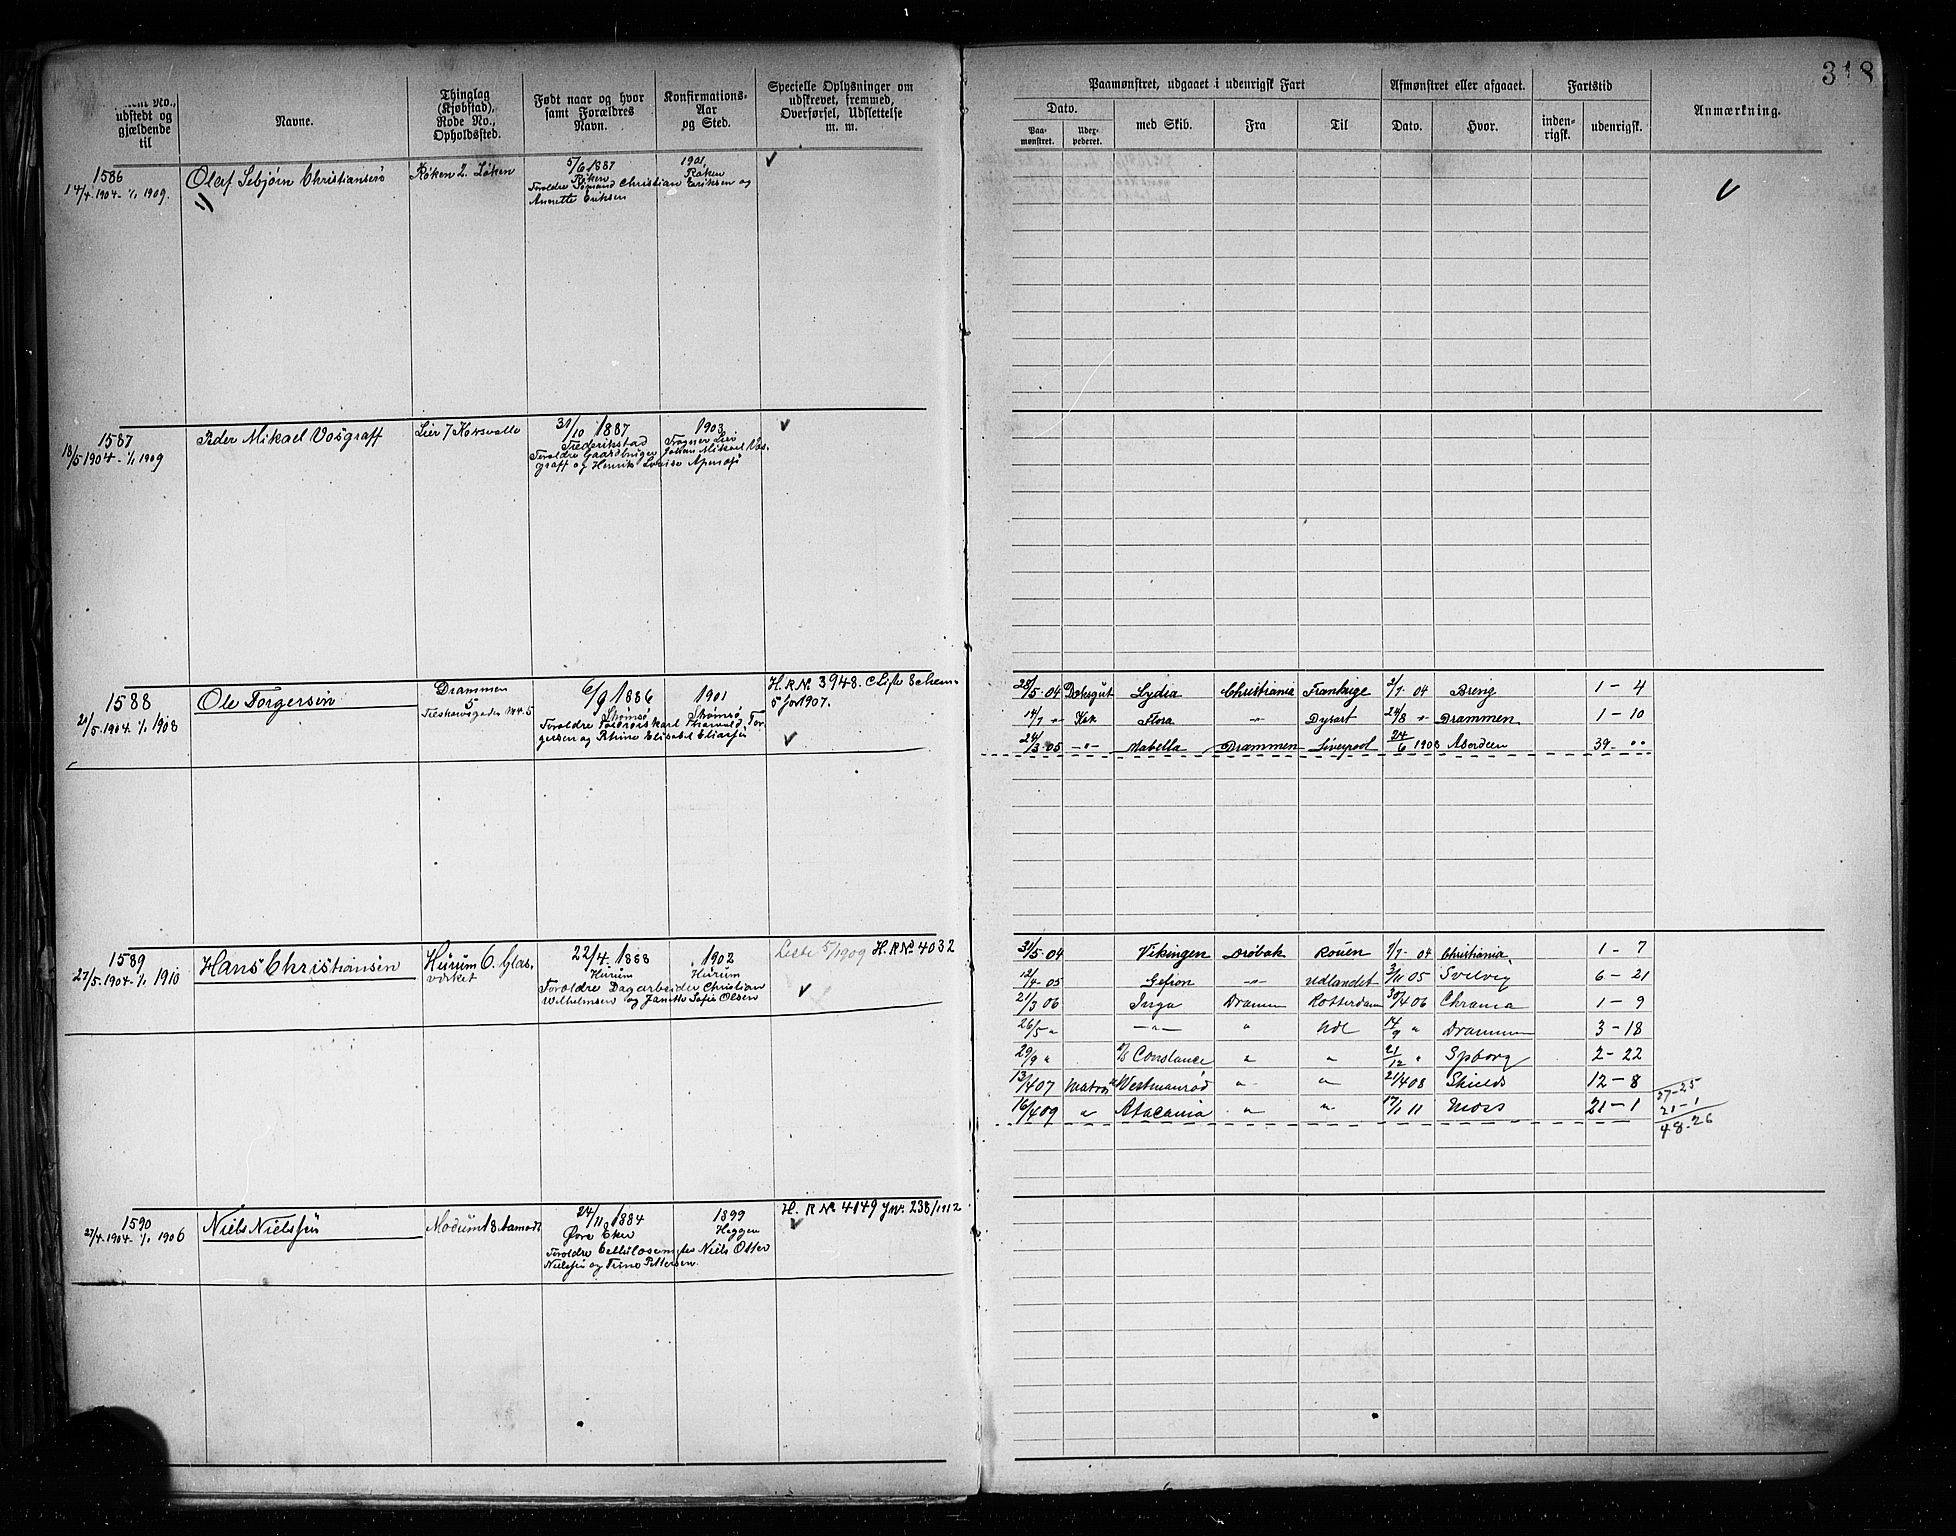 318
No.,
udstedt og
gjældende
til
Navne.
Thinglag
(Kjøbstad),
Rode No.,
Opholdssted.
Født naar og hvor
samt Forældres
Navn.
Konfirmations-
Aar
og Sted.
Specielle Oplysninger om
udskrevet, fremmed,
Overførsel, Udslettelse
m. m.
Paamønstret, udgaaet i udenrigsk Fart
Afmønstret eller afgaaet.
Fartstid
Anmærkning.
Dato.
Paa-
mønstret.
Uder-
pederet.
med Skib.
Fra
Til
Dato.
Hvor.
inden-
rigsk.
udenrigsk.
1586
14/4 1904 - 1/1 1909.
Olaf Sebjørn Christiansen
Røken 2. Løken
5/6 1887
Røken
Forældre Sømand Christian Eriksen og
Annette Eriksen
1901
Røken
1587
18/5 1904 - 1/1 1909
Peder Mikael Vosgraff
Lier 7
31/10 1887
Frederikstad
Forældre Gaardbruger Johan Mikael Vos-
graff og
1903
Frogner Lier
1588
21/5 1904 1/1 1908
Ole Torgersen
Drammen
5
6/9 1886
Strømsø
Forældre
Elisabet
1901
Strømsø
H. R. No. 3948.
5 Jor 1907.
28/5 04 Lydia Christiania 2/7 04 1 - 4
14/7 " Kok Flora " Dysart 24/8 " Drammen 1 - 10
24/3 05 -"- Mabella Drammen Liverpool 24/6 1908 Aberdeen 39 - "
1589
27/5 1904 1/1 1910
Hans Christiansen
Hurum 6. Glas-
værket
22/4 1888
Hurum
Forældre Dagarbeider Christian
Wilhelmsen og Sofie Olsen
1902
Hurum
Liste 5/1909 H. R. No. 4032
31/5 04 Vikingen Drøbak Rouen 7/7 04 Christiania 1 - 7
12/4 05 Gefion -"- Udlandet 3/11 05 Svelvig 6 - 21
21/3 06 Inga Dramm Rotterdam 30/4 06 Chrania 1 - 9
26/5 " -"- " Udl 14/9 " Drammen 3 - 18
29/9 " Constance " " 21/12 " Spborg 2 - 22
13/4 07 Matros Westmanrød " " 21/4 08 Shields 12 - 8
16/4 09 " Atacama " " 17/1 11 Moss 21 - 1
27-25
21-1
48-26
1590
27/4 1904 1/1 1906
Niels Nielsen
Modum 18
24/11 1884
Øvre Eker
Forældre Niels Otter
Nielsen og Trine Pettersen.
1899
Heggen
H. R. No. 4149 Jnr. 238/1912